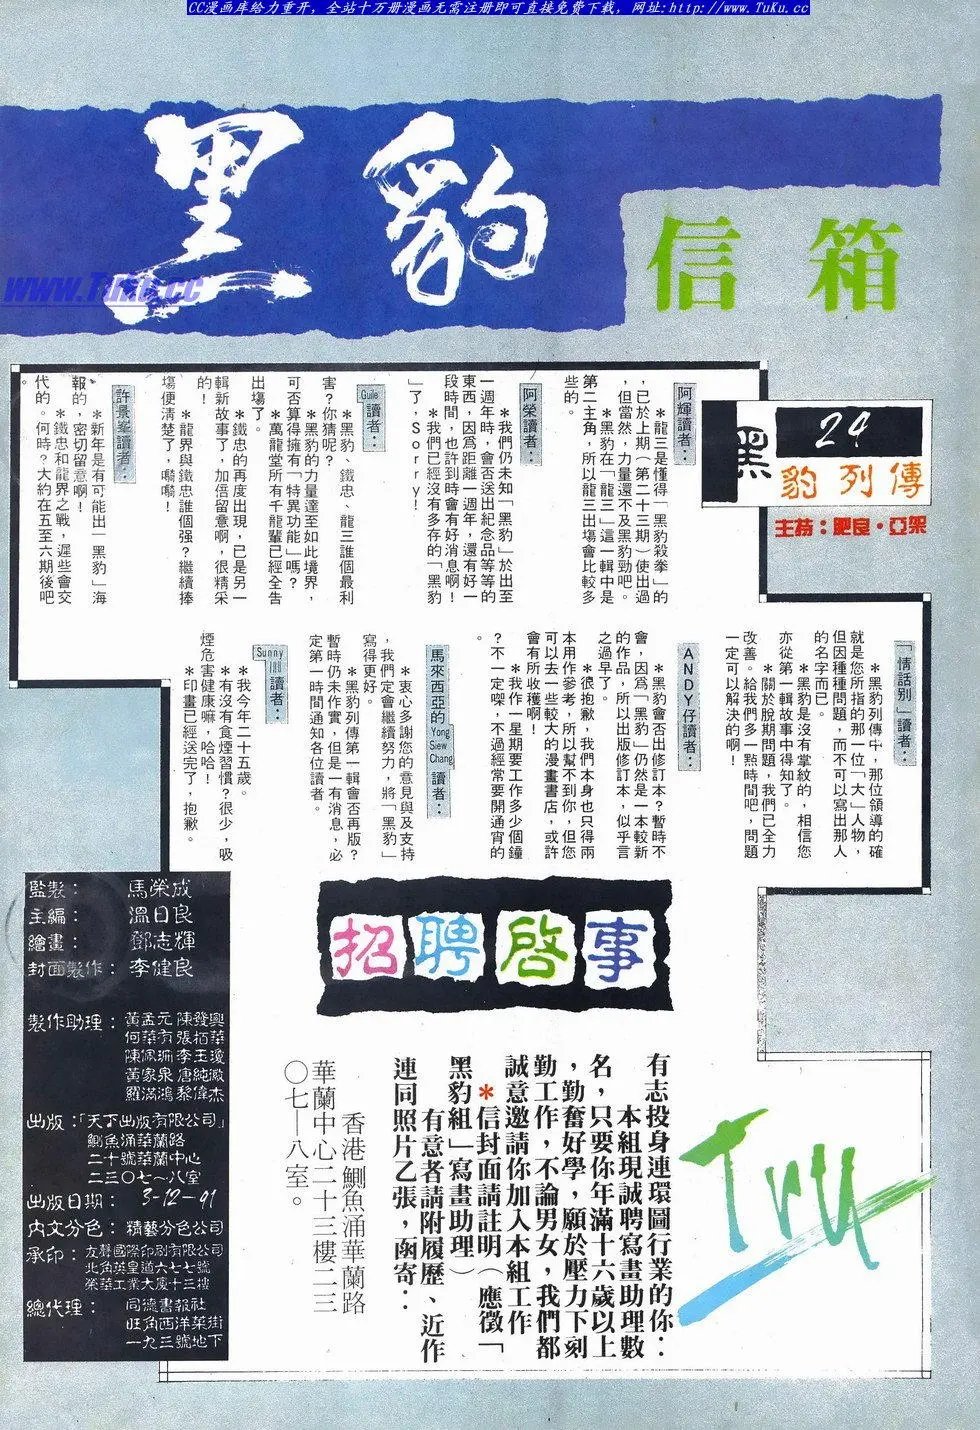 CC漫画库给力重开，全站十万册漫画无需注册即可直接免费下载，网址:http://www.TuKu.cc
黑豹
信箱
www.TuKu.cc
24
黑豹列傳
主持：肥良・亞架
阿輝讀者：
＊龍三是懂得「黑豹殺拳」的
，已於上期（第二十三期）使出過
，但當然，力量還不及黑豹勁吧。
＊黑豹在「龍三」這一輯中是
第二主角，所以龍三出場會比較多
些的。
阿榮讀者：
＊我們仍未知「黑豹」於出至
一週年時，會否送出紀念品等等的
東西，因爲距離一週年，還有好一
段時間，也許到時會有好消息啊！
＊我們已經沒有多存的「黑豹
」了，Sorry！
Guile讀者：
＊黑豹、鐵忠、龍三誰個最利
害？你猜呢？
＊黑豹的力量達至如此境界，
可否算得擁有「特異功能」嗎？
＊萬龍堂所有千龍輩已經全告
出塲了。
＊鐵忠的再度出現，已是另一
輯新故事了，加倍留意啊，很精采
的！
＊龍界與鐵忠誰個强？繼續捧
塲便清楚了，嘺嘺！
許景峯讀者：
＊新年是有可能出「黑豹」海
報的，密切留意啊！
＊鐵忠和龍界之戰，遲些會交
代的。何時？大約在五至六期後吧
。
「情話别」讀者：
＊黑豹列傳中，那位領導的確
就是您所指的那一位「大」人物，
但因種種問題，而不可以寫出那人
的名字而已。
＊黑豹是沒有掌紋的，相信您
亦從第一輯故事中得知了。
＊關於脫期問題，我們已全力
改善。給我們多一點時間吧，問題
一定可以解決的啊！
ANDY仔讀者：
＊黑豹會否出修訂本？暫時不
會，因爲「黑豹」仍然是一本較新
的作品，所以出版修訂本，似乎言
之過早了。
＊很抱歉，我們本身也只得兩
本用作參考，所以幫不到你，但您
可以去一些較大的漫畫書店，或許
會有所收穫啊！
＊我作一星期要工作多少個鐘
？不一定㗎，不過經常要開通宵的
。
馬來西亞的Yong Siew Chang讀者：
＊衷心多謝您的意見與及支持
，我們定會繼續努力，將「黑豹」
寫得更好。
＊黑豹列傳第一輯會否再版？
暫時仍未作實，但是一有消息，必
定第一時間通知各位讀者。
Sunny讀者：
＊我今年二十五歲。
＊有沒有食煙習慣？很少，吸
煙危害健康嘛，哈哈！
＊印畫已經送完了，抱歉。
招聘啓事
Tru
有志投身連環圖行業的你：
本組現誠聘寫畫助理數
名，只要你年滿十六歲以上
，勤奮好學，願於壓力下刻
勤工作，不論男女，我們都
誠意邀請你加入本組工作
＊信封面請註明（應徵「
黑豹組」寫畫助理）
有意者請附履歷、近作
連同照片乙張，函寄：
香港鰂魚涌華蘭路
華蘭中心二十三樓二三
〇七—八室。
監製：馬榮成
主編：溫日良
繪畫：鄧志輝
封面製作：李健良
製作助理：黃孟元 陳發興
何華有 張栢華
陳佩珊 李玉瓊
黃家泉 唐純溦
羅滿鴻 黎偉杰
出版：「天下出版有限公司」
鰂魚涌華蘭路
二十號華蘭中心
二三〇七～八室
出版日期：3-12-91
內文分色：精藝分色公司
承印：友聲國際印刷有限公司
北角英皇道六七七號
榮華工業大廈十三樓
總代理：同德書報社
旺角西洋菜街
一九三號地下